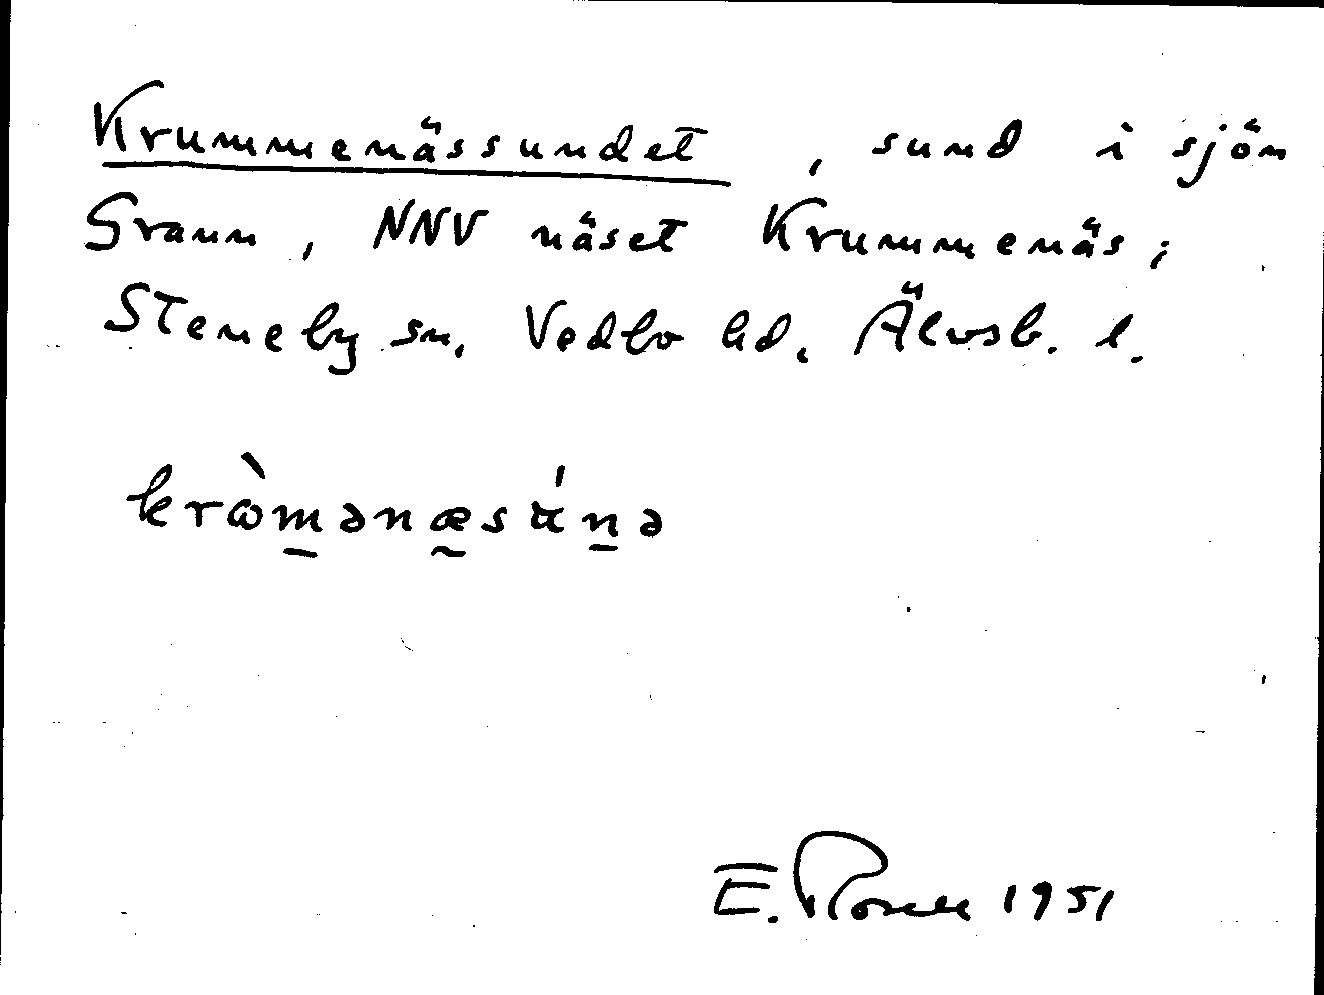 Krummenässundet, sund i sjön
Grann, NNV näset Krummenäs;
Steneby sn. Vedbo hd. Älvsb. l.
kròm̱ənæ̰sʉ́ṉə
E. Rosell 1951